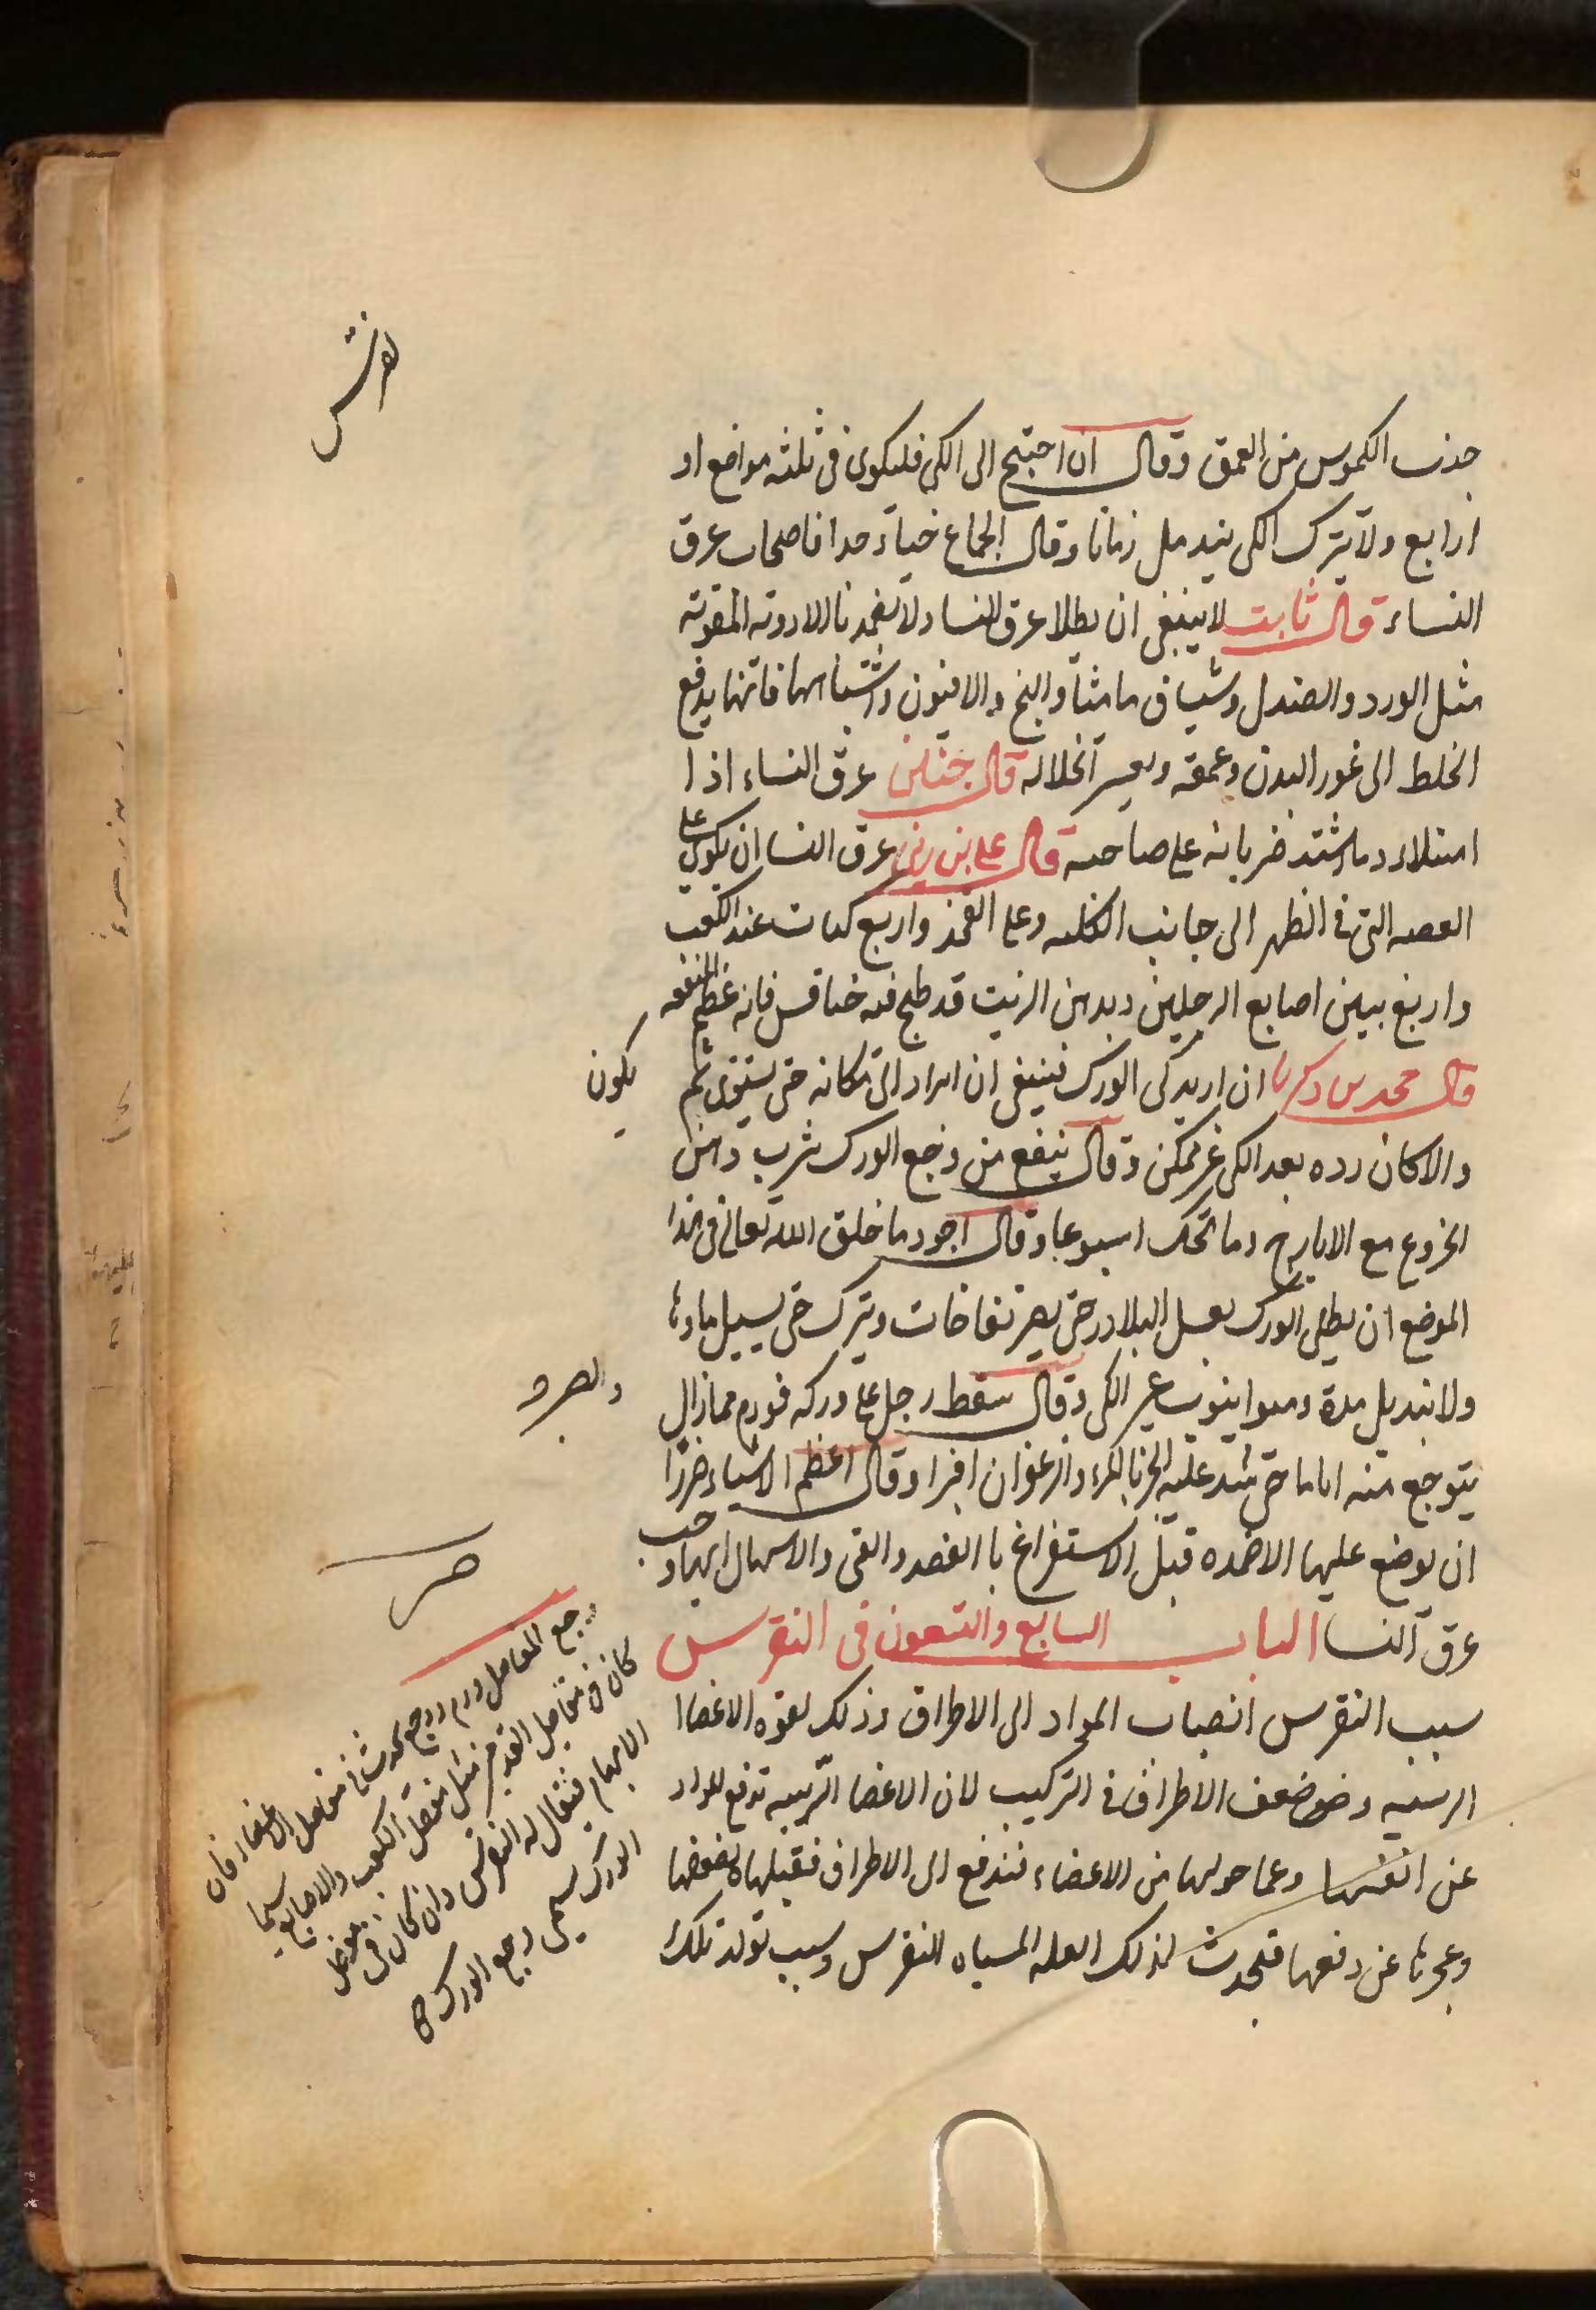 جذب الكموس من العمق وقال ان احتيج الى الكي فليكوى فى ثلثه مواضع او
اربع ولا يترك الكى يندمل زمانا وقال الجماع جدا فاصحاب عرق
النساء قال ثابت لا ينبغى ان يطلا عرق النسا ولا بالادويه المقويه
مثل الورد والصندل وشياف ماميثا والبنج والافيون واشباهها فانها يدفع
الخلط الى غور البدن وعمقه ويعسر انحلاله قال عرق النساء اذا
امتلاء دما اشتد ضربانه على صاحبه قال على بن عرق النسا ان يكوى على
العصبه التى فى الظهر الى جانب الكليه وعلى الفخذ واربع كيات عند الكعب
واربع بين اصابع الرجلين ويدهن الزيت قد طبخ فيه خنافس فانه عظيم المنفعه
قال محمد بن زكريا ان اريد كى الورك فينبغى ان يراد الى مكانه حتى يستوى ثم يكون
والا كان رده بعد الكى غير ممكن وقال ينفع من وجع الورك شرب دهن
الخروع مع الايارج اسبوعا وقال اجود ما خلق الله تعالى فى هذا
الموضع ان يطلى الورك بعسل البلادر حتى يصير نفاخات ويترك حتى يسيل ماؤها
ولا يندمل مدة الكى وقال سقط رجل على وركه فورم فما زال
يتوجع منه اياما حتى وقال اعظم الاشياء ضررا
ان يوضع عليها الاضمده قبل الاستفراغ بالفصد والقى والاسهال
عرق النسا الباب السابع والتسعون فى النقرس
سبب النقرس انصباب المواد الى الاطراف وذلك لقوه الاعضا
الرئسيه وضعف الاطراف فى التركيب لان الاعضا الرئسيه تدفع المواد
عن انفسها وعما حولها من الاعضاء فتدفع الى الاطراف فتقبلها لضعفها
وعجزها عن دفعها فتحدث لذلك العله المسماه النقرس وسبب تولد تلك
وجع المفاصل ورم ووجع يحدث فى مفاصل الاعضاء فان
كان فى مفاصل القدمين مثل مفصل الكعب والاصابع سيما
الابهام فيقال له النقرس وان كان فى مفصل
الورك سمى وجع الورك